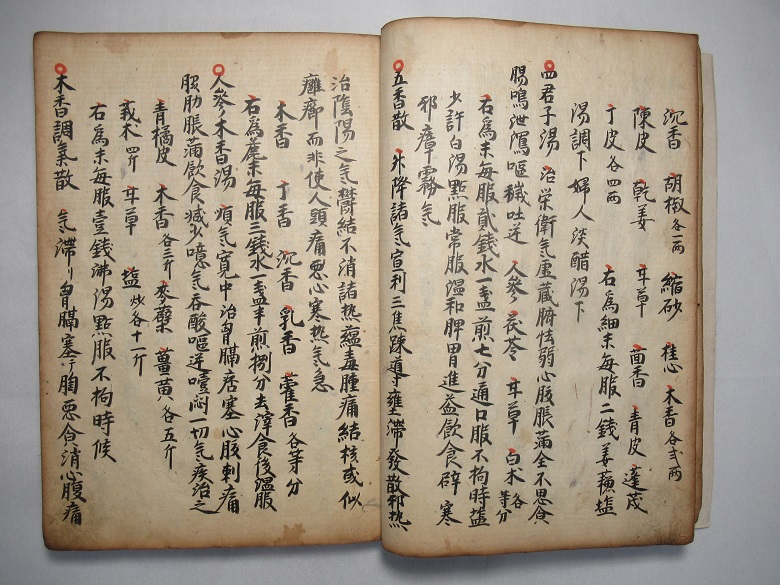 沉香 胡椒各一兩 縮砂 桂心 木香各弐兩
陳皮 乾姜 甘草 茴香 青皮 蓬茂
丁皮各四兩 右爲細末毎服二錢姜蘓塩
湯調下婦人淡醋湯下
四君子湯 治栄衛氣虚蔵腑怯弱心腹脹滿全不思食
腸鳴泄瀉嘔穢吐逆 人參 茯苓 甘草 白朮各等分
右爲末毎服貳錢水一盞煎七分通口服不拘時塩
少許白湯點服常服温和脾胃進益飲食辟寒
邪瘴霧氣
五香散 升降諸氣宣利三焦踈導壅滞發散邪熱
治陰陽之氣欝結不消諸熱蘊毒腫痛結核或似
癰癤而非使人頭痛悪心寒熱氣急
木香 丁香 沉香 乳香 藿香各等分
右爲麁末毎服三錢水一盞半煎捌分去滓食後温服
人參木香湯 順氣寛中治胷膈痞塞心腹刺痛
脇肋脹滿飲食減少噫氣呑酸嘔逆噎悶一切氣疾治之
青橘皮 木香各三斤 麥蘖 薑黄各五斤
莪朮四斤 甘草 塩炒各十一斤
右爲末毎服壹錢沸湯點服不拘時候
木香調氣散 氣滞胷膈塞胸悪合消心腹痛